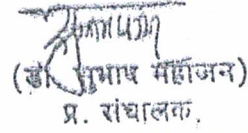 (डॉ सुभाष महाजन)
प्र. संचालक.